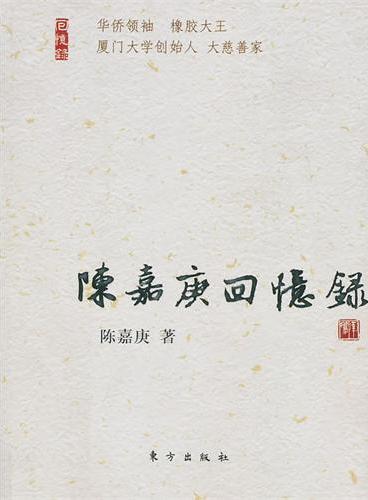 回憶錄
华侨领袖 橡胶大王
厦门大学创始人 大慈善家
陳嘉庚回憶錄
陈嘉庚 著
东方出版社